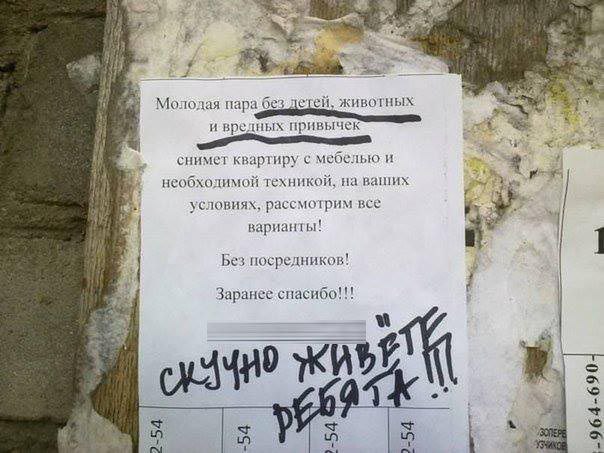 Молодая пара без детей, животных
и вредных привычек
снимет квартиру с мебелью и
необходимой техникой, на ваших
условиях, рассмотрим все
варианты!
Без посредников!
Заранее спасибо!!!
СКУЧНО ЖИВЁТЕ
РЕБЯТА!!!
2-54
-54
2-54
2-54
1
-964-690-
ЗОПЕРЕ
УЗЧИКОВ